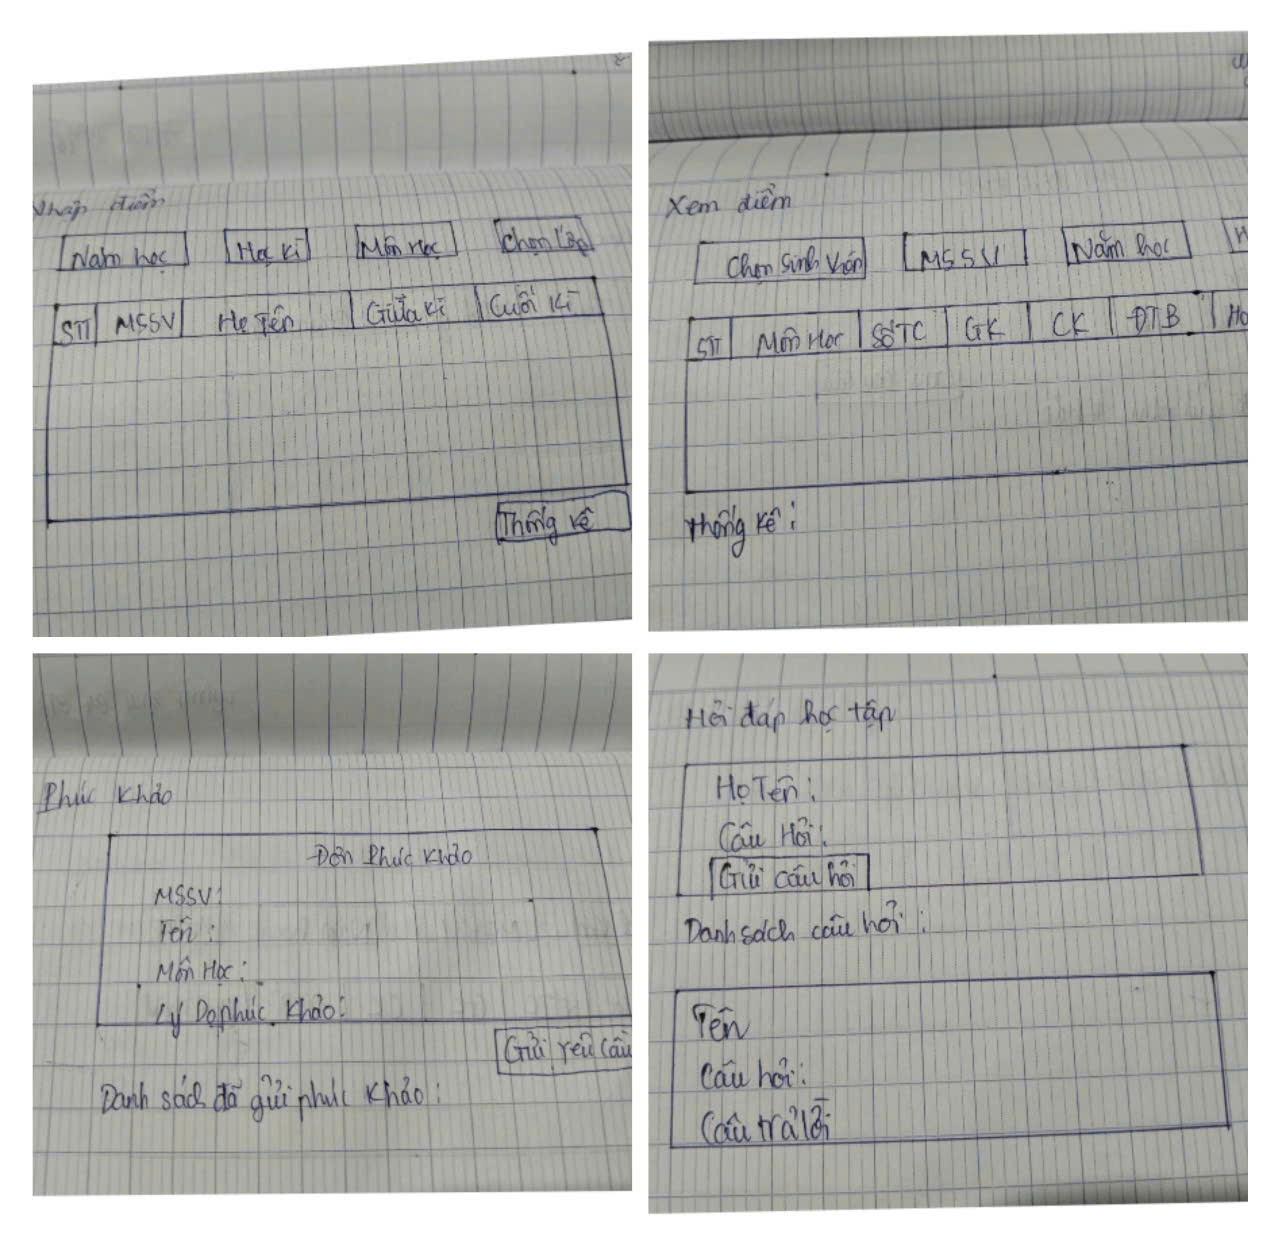 Nhập điểm
Năm học Học kì Môn Học Chọn Lớp
STT MSSV Họ Tên Giữa Kì Cuối Kì
Thống kê
Xem điểm
Chọn Sinh Viên MSSV Năm học H
STT Môn Học Số TC GK CK ĐTB Họ
Thống kê :
Phúc Khảo
Đơn Phúc Khảo
MSSV:
Tên :
Môn Học :
Lý Do phúc Khảo:
Gửi yêu cầu
Danh sách đã gửi phúc Khảo :
Hỏi đáp học tập
Họ Tên :
Câu Hỏi :
Gửi câu hỏi
Danh sách câu hỏi :
Tên
Câu hỏi :
Câu trả lời